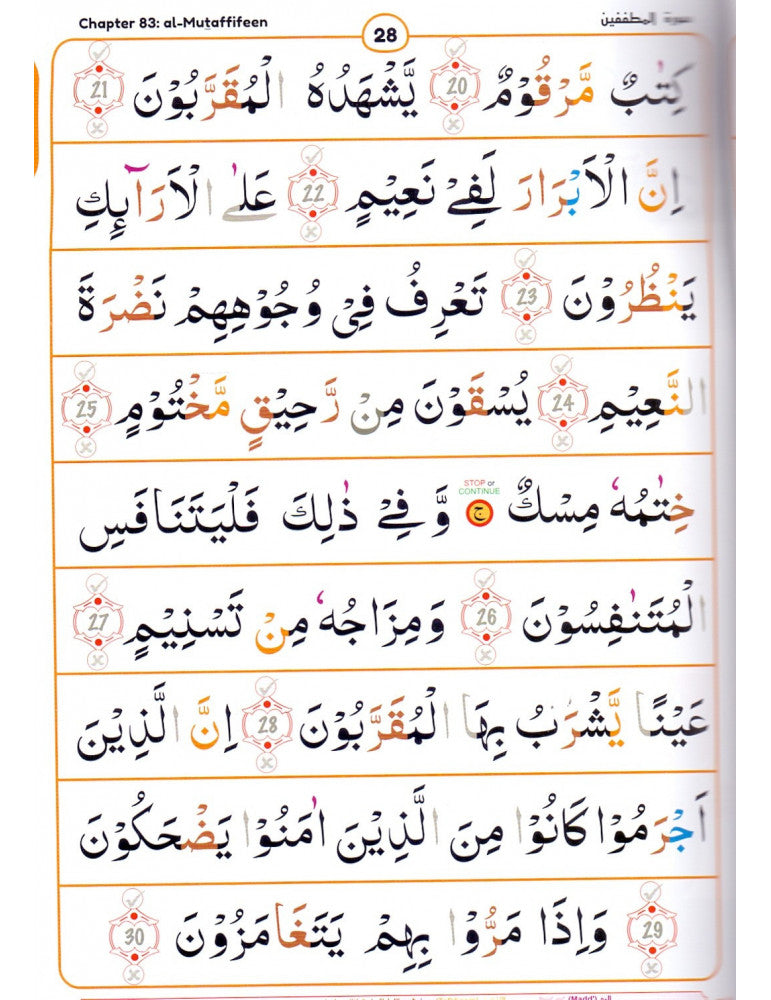 Chapter 83: al-Muṭaffifeen
28
سورة المطففين
كِتٰبٌ مَّرْقُوْمٌ 20 يَّشْهَدُهُ الْمُقَرَّبُوْنَ 21
اِنَّ الْاَبْرَارَ لَفِيْ نَعِيْمٍ 22 عَلَى الْاَرَآئِكِ
يَنْظُرُوْنَ 23 تَعْرِفُ فِيْ وُجُوْهِهِمْ نَضْرَةَ
النَّعِيْمِ 24 يُسْقَوْنَ مِنْ رَّحِيْقٍ مَّخْتُوْمٍ 25
STOP or
CONTINUE
خِتٰمُهٗ مِسْكٌ ج وَّفِيْ ذٰلِكَ فَلْيَتَنَافَسِ
الْمُتَنٰفِسُوْنَ 26 وَمِزَاجُهٗ مِنْ تَسْنِيْمٍ 27
عَيْنًا يَّشْرَبُ بِهَا الْمُقَرَّبُوْنَ 28 اِنَّ الَّذِيْنَ
اَجْرَمُوْا كَانُوْا مِنَ الَّذِيْنَ اٰمَنُوْا يَضْحَكُوْنَ
29 وَاِذَا مَرُّوْا بِهِمْ يَتَغَامَزُوْنَ 30